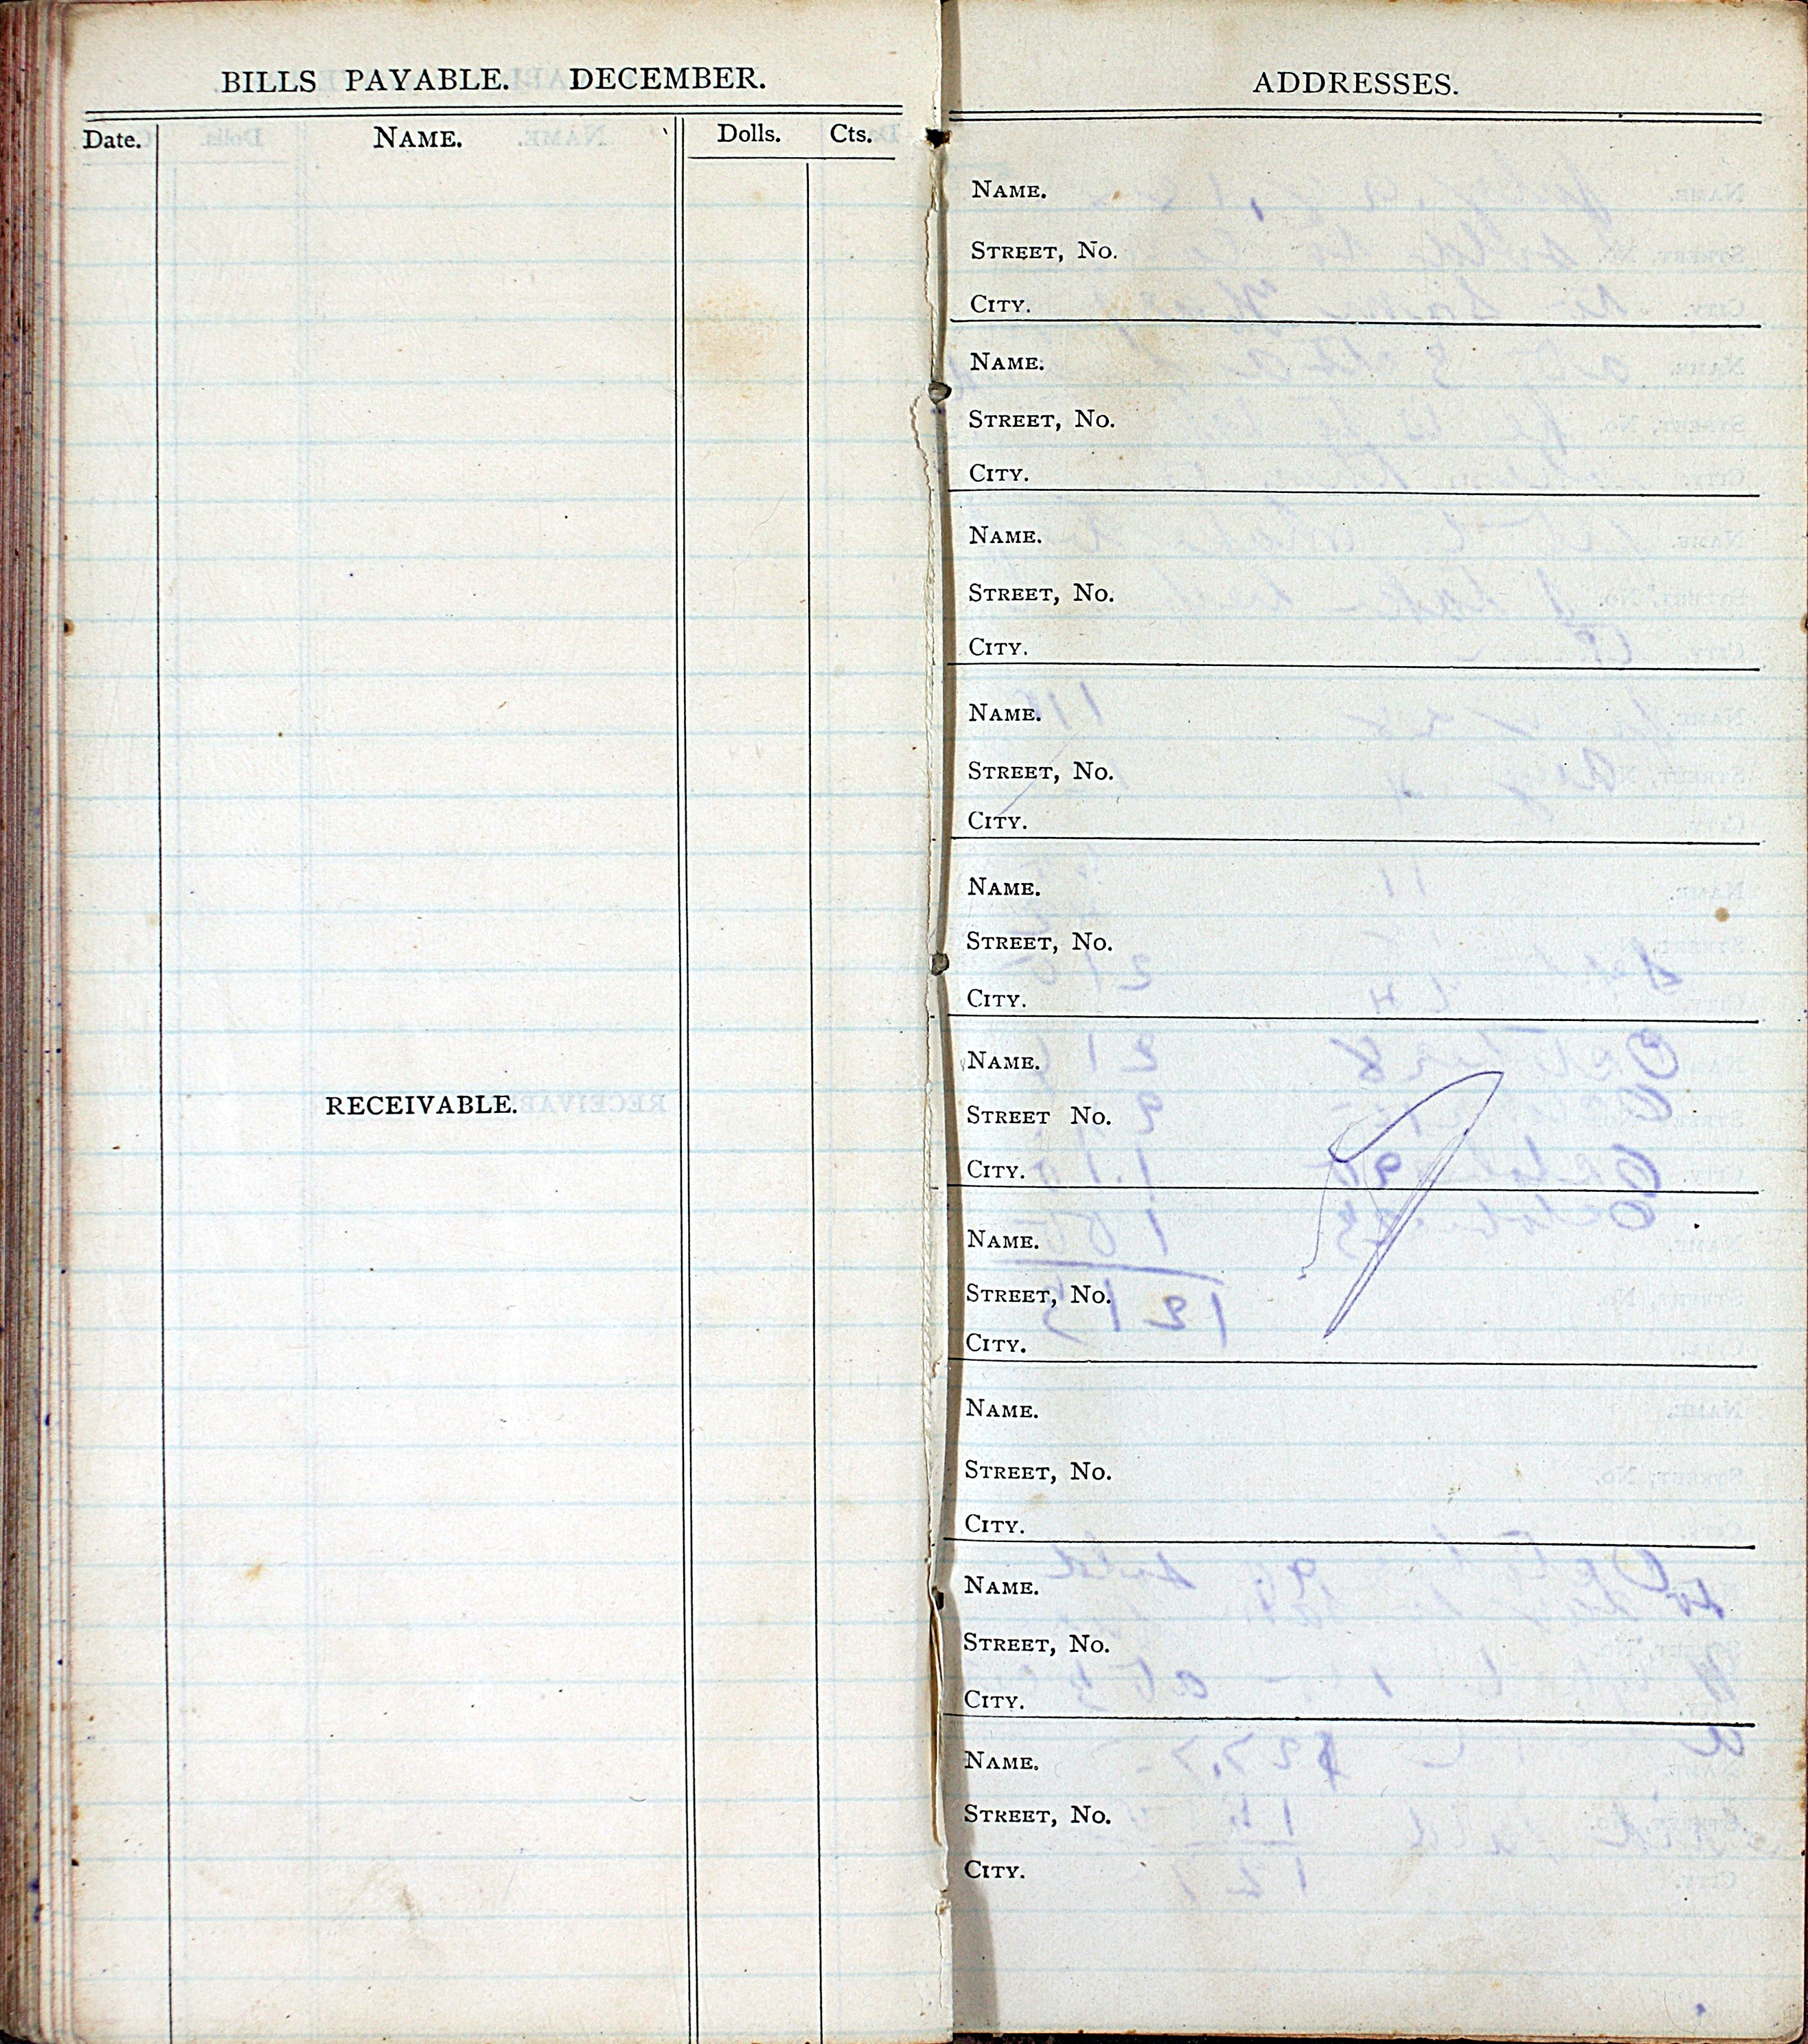 BILLS PAYABLE. DECEMBER.
Date. NAME. Dolls. Cts.
RECEIVABLE.
ADDRESSES.
NAME.
STREET, No.
CITY.
NAME.
STREET, No.
CITY.
NAME.
STREET, No.
CITY.
NAME.
STREET, No.
CITY.
NAME.
STREET, No.
CITY.
NAME.
STREET No.
CITY.
NAME.
STREET, No.
CITY.
NAME.
STREET, No.
CITY.
NAME.
STREET, No.
CITY.
NAME.
STREET, No.
CITY.